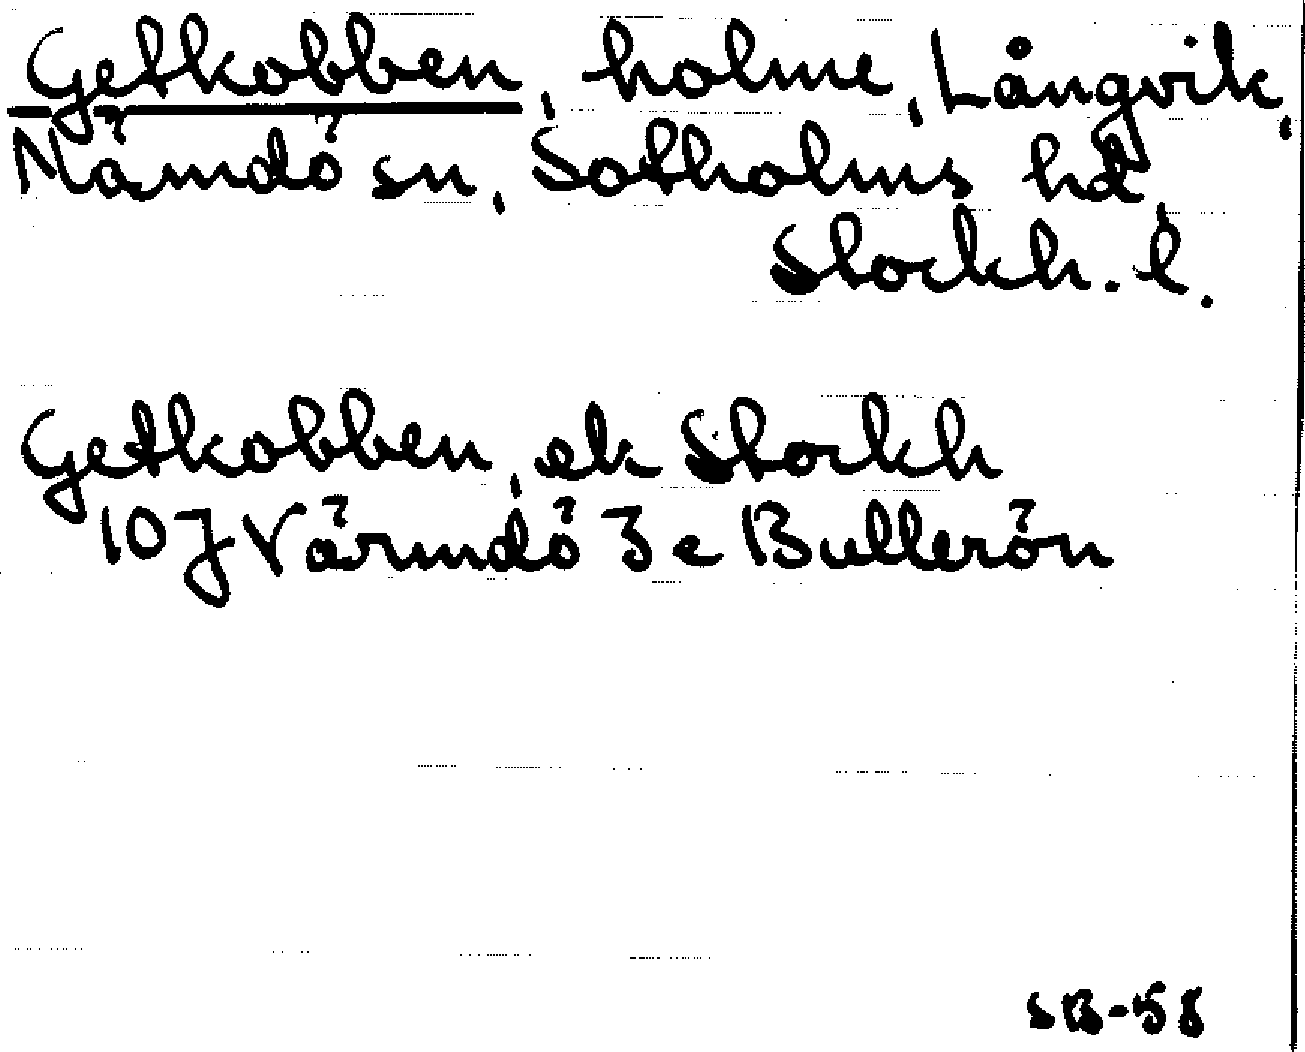 Getkobben, holme, Långvik,
Nämdö sn, Sotholms hd,
Stockh. l.
Getkobben, ek Stockh
10J Värmdö 3 e Bullerön
SB-58